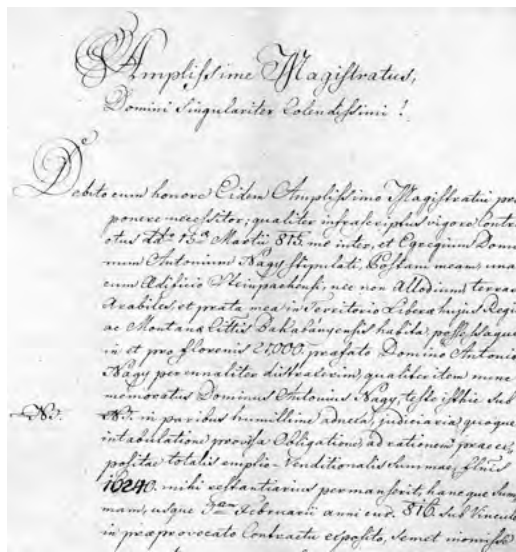 Amplissime Magistratus,
Domini Singulariter Colendissimi!
Debito cum honore Eidem Amplissimo Magistratui pro
ponere necessitor; qualiter infrascriptus vigore Contra
ctus dto 13a Martii 815. me inter, et Egregium Domi
num Antonium Nagy stipulati, Postam meam, una
cum Ædificio Steinpachensi, nec non Allodium terras
Arabiles et prata mea in Territorio Liberæ hujus Regiæ
ac Montanæ Cittis Bakabányensis habita, possessaque
in et pro florenis 21,000. præfato Domino Antonio
Nagy perennaliter distraxerim, qualiter item nunc
memoratus Dominus Antonius Nagy, teste isthic sub
No. No. in paribus humillime adnexa, judiciaria quoque
intabulatione provisa Obligatione, ad rationem præex
positæ totalis emptio-venditionalis Summae, flnis
10240. mihi restantiarius permanserit, hancque Sum
mam, usque Februarii anni 816. sub Vinculo
in præprovocato Contractu exposito, semet